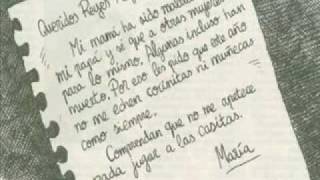 Queridos Reyes
Mi mamá ha sido
mi papá y sé que a otras mujeres
pasa lo mismo. Algunas incluso han
muerto. Por eso les pido que este año
no me echen cocinitas ni muñecas
como siempre.
Comprendan que no me apetece
nada jugar a las casitas.
María